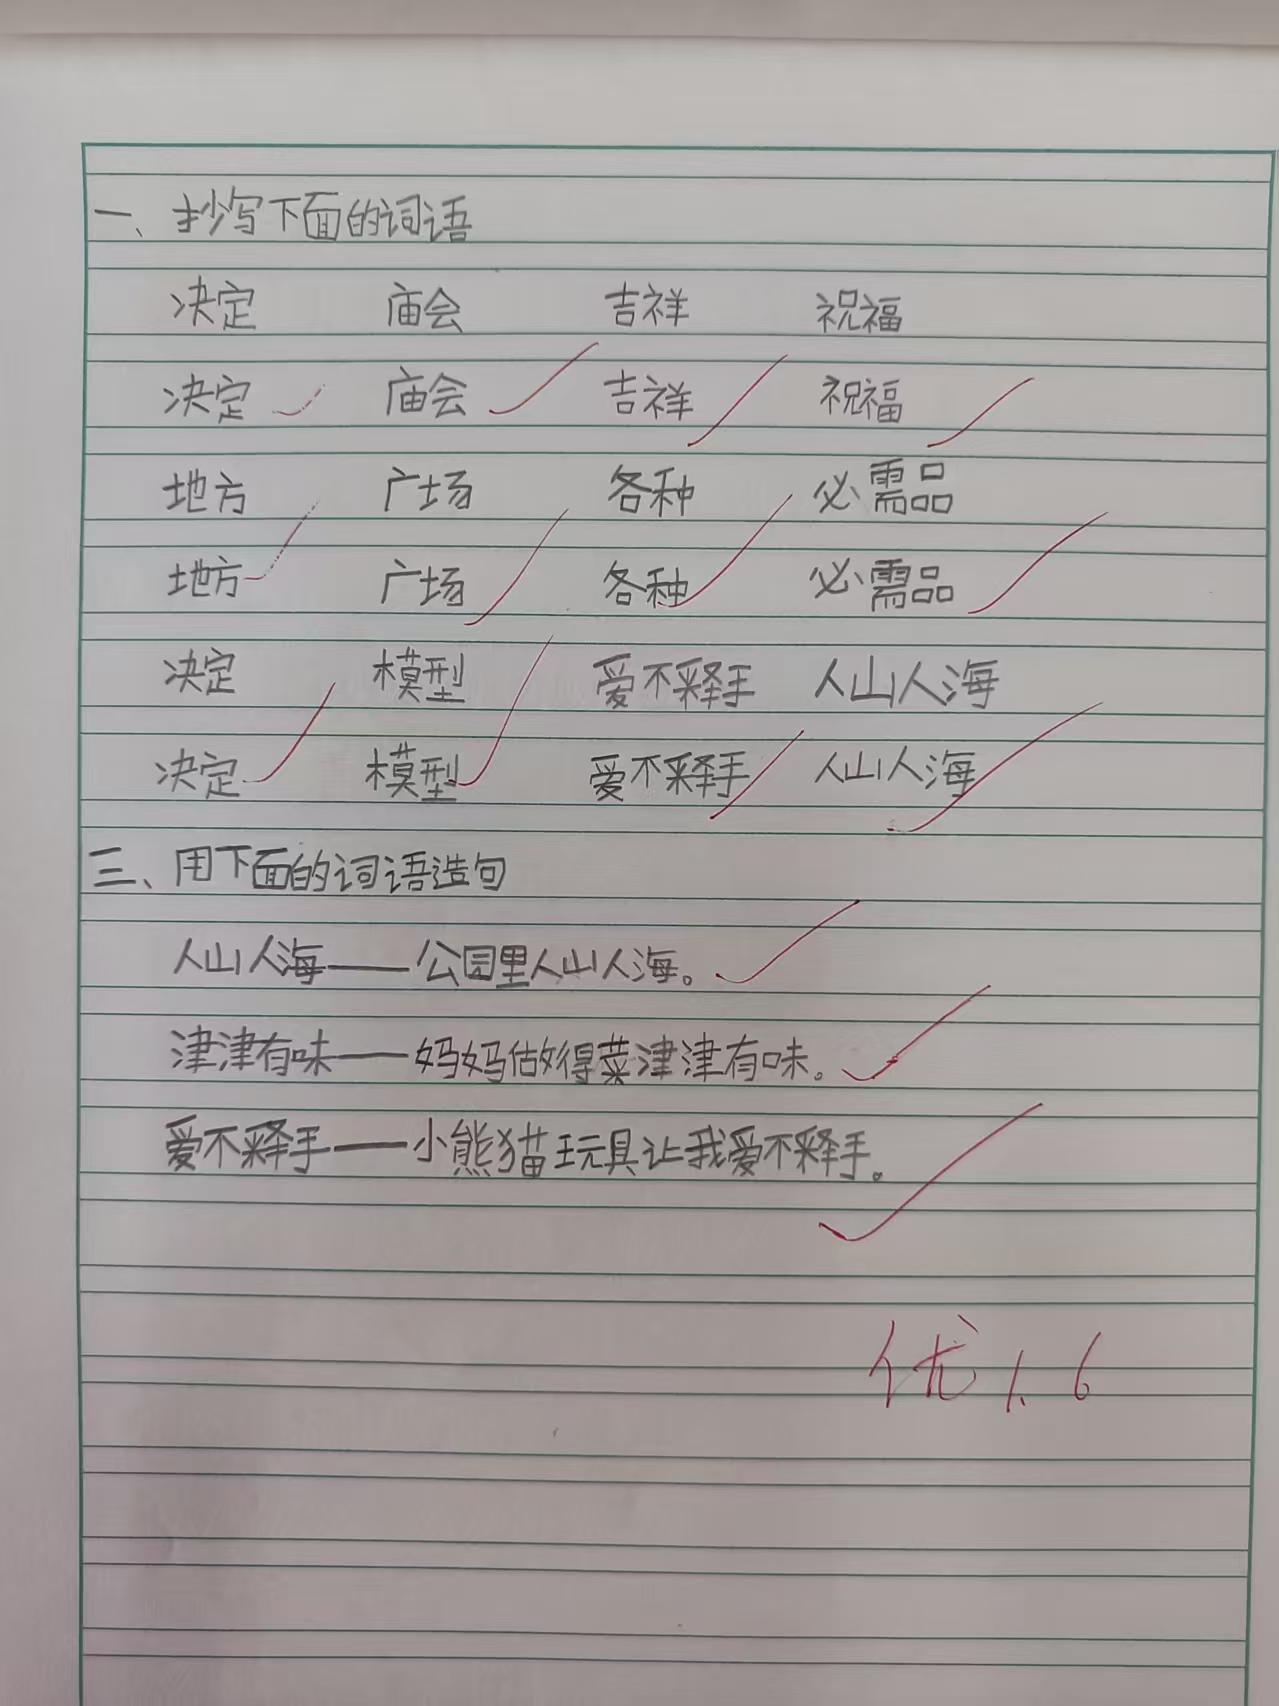 一、抄写下面的词语
决定 庙会 吉祥 祝福
决定 庙会 吉祥 祝福
地方 广场 各种 必需品
地方 广场 各种 必需品
决定 模型 爱不释手 人山人海
决定 模型 爱不释手 人山人海
三、用下面的词语造句
人山人海——公园里人山人海。
津津有味——妈妈做得菜津津有味。
爱不释手——小熊猫玩具让我爱不释手。
优 1.6